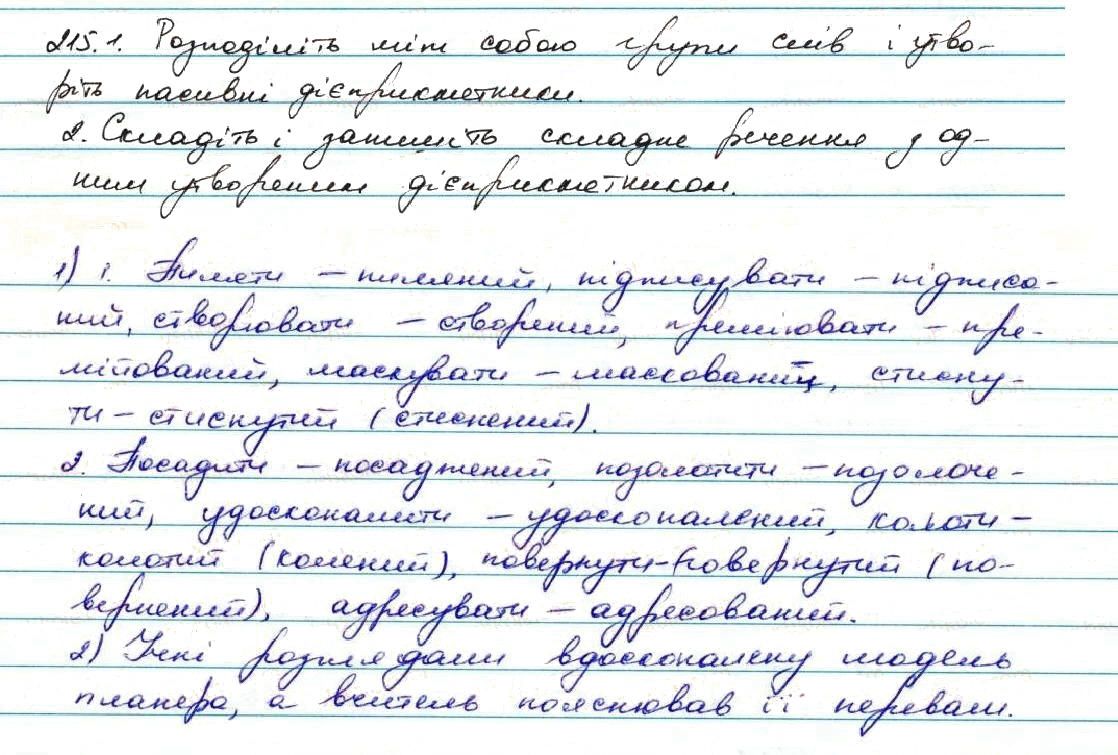 215.1. Розподіліть між собою групи слів і утво-
ріть пасивні дієприкметники.
2. Складіть і запишіть складне речення з од-
ним утвореним дієприкметником.
1) 1. Пиляти – пиляний, підписувати – підписа-
ний, створювати – створений, преміювати – пре-
мійований, маскувати – маскований, стисну-
ти – стиснутий (стиснений).
2. Посадити – посаджений, позолотити – позолоче-
ний, удосконалити – удосконалений, колоти –
колотий (колений), повернути – повернутий (по-
вернений), адресувати – адресований.
2) Учні розглядали вдосконалену модель
планера, а вчитель пояснював її переваги.